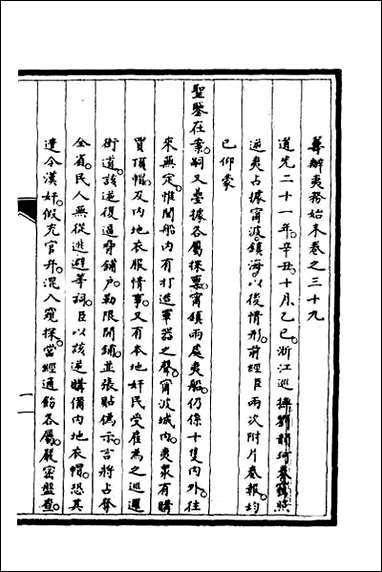 籌辦夷務始末卷之三十九
道光二十一年。辛丑。十月。乙巳。浙江巡撫劉韻珂奏竊照
逆夷占據甯波鎮海。以後情形。前經臣兩次附片奏報。均
已仰蒙
聖鑒在案。嗣又疊據各屬探稟。甯鎮兩處夷船仍係十隻內外。往
來無定。惟聞船內有打造軍器之聲。甯波城內。夷衆有購
買頂帽。及內地衣服情事。又有本地奸民受雇為之巡邏
街道。該逆復逼脅鋪戶。勒限開鋪。並張貼偽示。言將占奪
全省。民人無從逃避等詞。臣以該逆購備內地衣帽。恐其
遣令漢奸。假充官弁。混入窺探。當經通飭各屬。嚴密盤查。
一